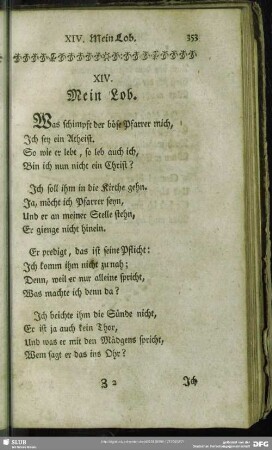 XIV. Mein Lob. 353
XIV.
Mein Lob.
Was schimpft der böse Pfarrer mich,
Ich sey ein Atheist.
So wie er lebt, so leb auch ich,
Bin ich nun nicht ein Christ?
Ich soll ihm in die Kirche gehn.
Ja, möcht ich Pfarrer seyn,
Und er an meiner Stelle stehn,
Er gienge nicht hinein.
Er predigt, das ist seine Pflicht:
Ich komm ihm nicht zu nah;
Denn, weil er nur alleine spricht,
Was machte ich denn da?
Ich beichte ihm die Sünde nicht,
Er ist ja auch kein Thor,
Und was er mit den Mädgens spricht,
Wem sagt er das ins Ohr?
Z 2 Ich
SLUB
DFG